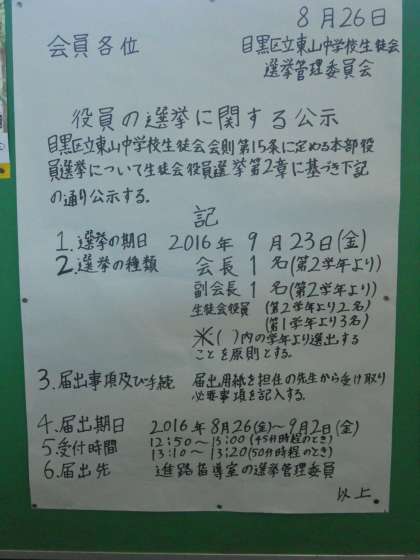 8月26日
会員各位
目黒区立東山中学校生徒会
選挙管理委員会
役員の選挙に関する公示
目黒区立東山中学校生徒会会則第15条に定める本部役
員選挙について生徒会役員選挙第2章に基づき下記
の通り公示する.
記
1.選挙の期日 2016年 9月23日(金)
2.選挙の種類 会長 1名(第2学年より)
副会長 1名(第2学年より)
生徒会役員 (第2学年より2名)
(第1学年より3名)
※( )内の学年より選出する
ことを原則とする.
3.届出事項及び手続 届出用紙を担任の先生から受け取り
必要事項を記入する.
4.届出期日 2016年 8月26(金)〜9月2日(金)
5.受付時間 12:50〜13:00(45分時程のとき)
13:10〜13:20(50分時程のとき)
6.届出先 進路指導室の選挙管理委員
以上